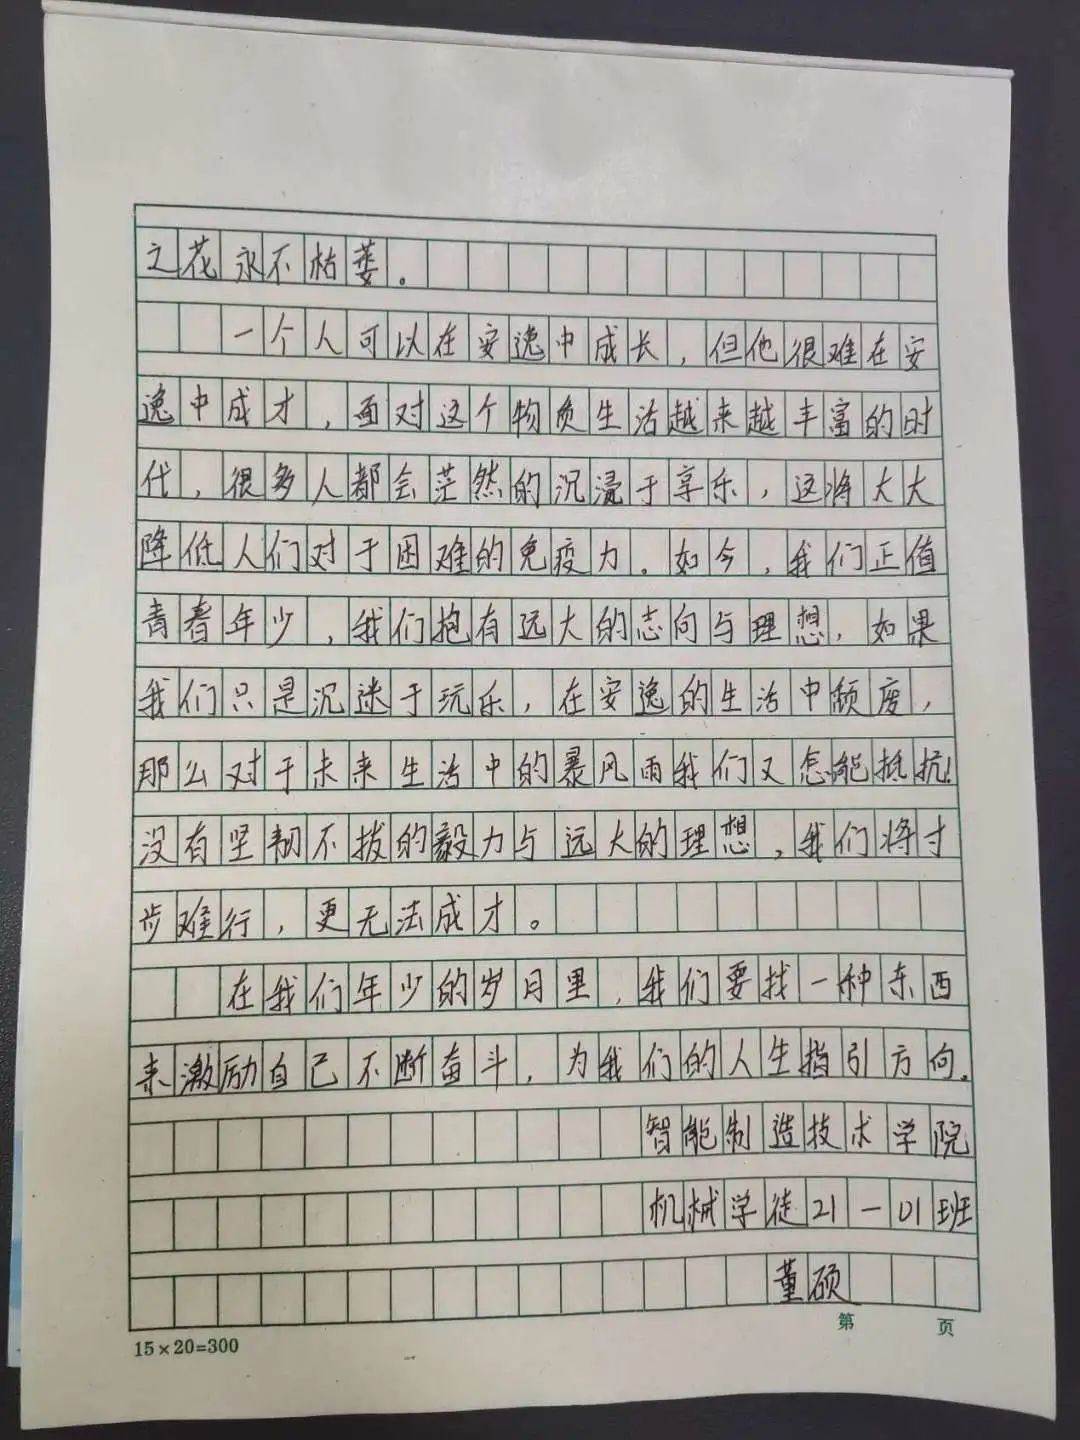 之花永不枯萎。
一个人可以在安逸中成长，但他很难在安
逸中成才，面对这个物质生活越来越丰富的时
代，很多人都会茫然的沉浸于享乐，这将大大
降低人们对于困难的免疫力。如今，我们正值
青春年少，我们抱有远大的志向与理想，如果
我们只是沉迷于玩乐，在安逸的生活中颓废，
那么对于未来生活中的暴风雨我们又怎能抵抗！
没有坚韧不拔的毅力与远大的理想，我们将寸
步难行，更无法成才。
在我们年少的岁月里，我们要找一种东西
来激励自己不断奋斗，为我们的人生指引方向。
智能制造技术学院
机械学徒21一01班
董硕
第 页
15×20=300